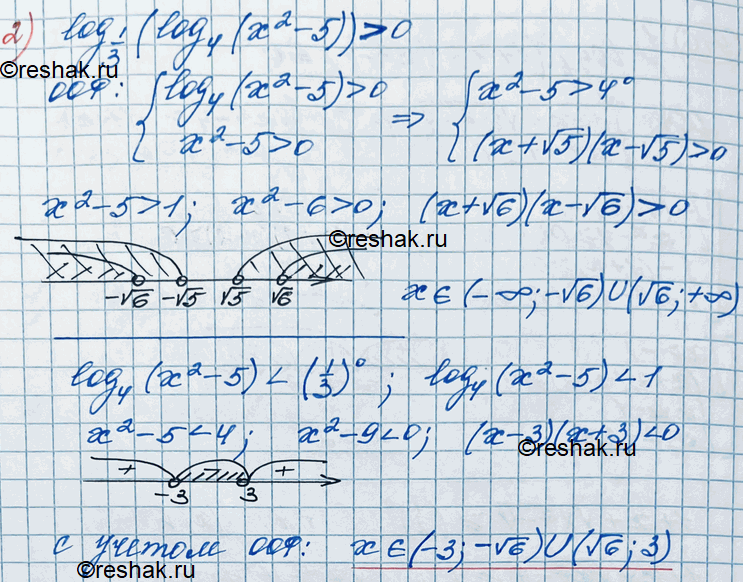 2) log_{1/3} (log₄ (x² − 5)) > 0
©reshak.ru
ООФ: { log₄ (x² − 5) > 0 ⇒ { x² − 5 > 4⁰
x² − 5 > 0 (x + √5)(x − √5) > 0
x² − 5 > 1; x² − 6 > 0; (x + √6)(x − √6) > 0
©reshak.ru
−√6 −√5 √5 √6
x ∈ (−∞; −√6) ∪ (√6; +∞)
log₄ (x² − 5) < (1/3)⁰; log₄ (x² − 5) < 1
x² − 5 < 4; x² − 9 < 0; (x − 3)(x + 3) < 0
©reshak.ru
+ +
−3 3
с учетом ООФ: x ∈ (−3; −√6) ∪ (√6; 3)
©reshak.ru